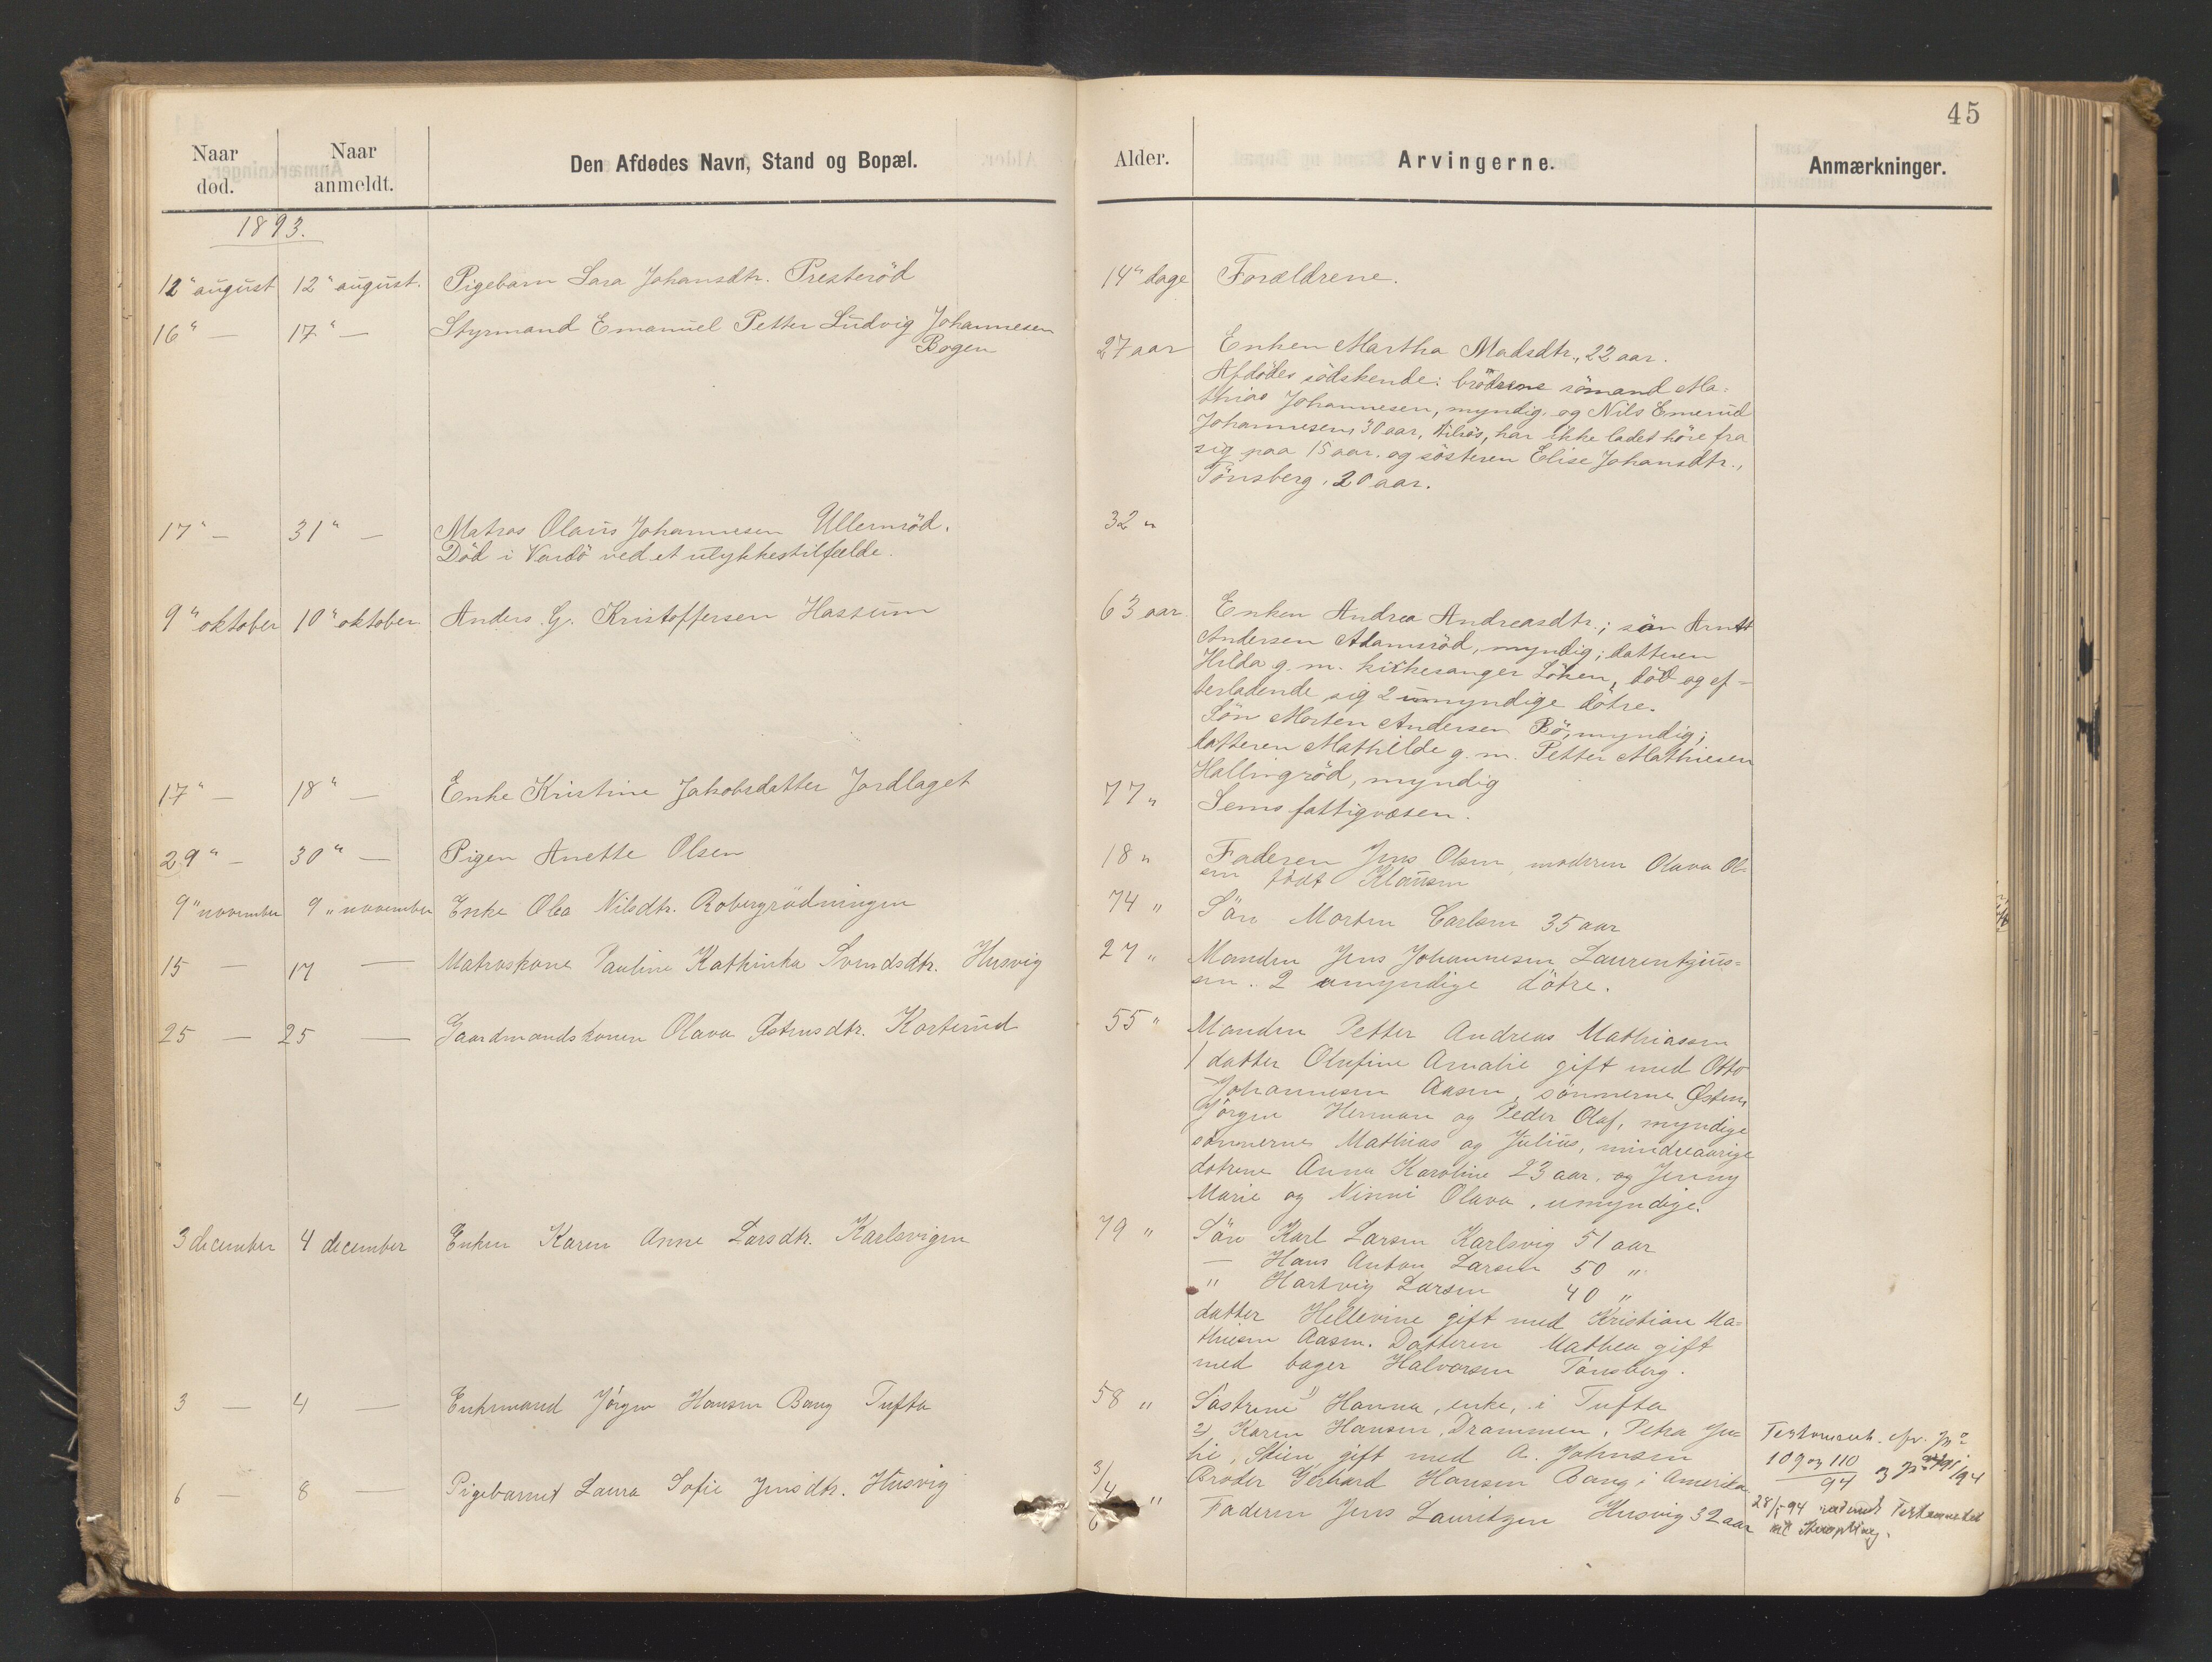 45
Naar død.
Naar anmeldt.
Den Afdødes Navn, Stand og Bopæl.
Alder.
Arvingerne.
Anmærkninger.
1893.
12" august 12" august. Pigebarn Sara Johansdtr. Presterød
14" dage Forældrene.
16" — 17" — Styrmand Emanuel Petter Ludvig Johannesen
Bogen
27 aar Enken Martha Madsdtr., 22 aar.
Afdødes sødskende: brødrene sømand Ma-
thias Johannesen, myndig, og Nils Emerud
Johannesen, 30 aar, har ikke ladet høre fra
sig paa 15 aar. og søsteren Elise Johansdtr.,
Tønsberg, 20 aar.
17" — 31" — Matros Olaus Johannesen Ullernrød.
Død i Vardø ved et ulykkestilfælde.
32 "
9" oktober 10" oktober. Anders G. Kristoffersen Hassum
63 aar. Enken Andrea Andreasdtr.; søn Arnt
Andersen Adamsrød, myndig; datteren
Hilda g. m. kirkesanger Løken, død og ef-
terladende sig 2 umyndige døtre.
Søn Morten Andersen Bø, myndig;
datteren Mathilde g. m. Petter Mathiesen
Hallingrød, myndig
17" — 18" — Enke Kristine Jakobsdatter Jordlaget
77 " Sems fattigvæsen.
29" — 30" — Pigen Anette Olsen
18 " Faderen Jens Olsen, moderen Olava Ol-
sen født Klausen
9" november 9" november Enke Olea Nilsdtr. Robergrødningen
74 " Søn Morten Carlsen 35 aar
15 — 17 — Matroskone Pauline Kathinka Svendsdtr. Husvig
27 " Manden Jens Johannesen Laurentzius-
sen. 2 umyndige døtre.
25 — 25 — Gaardmandskonen Olava Østensdtr. Korterud
55 " Manden Petter Andreas Mathiassen
1 datter Olufine Amalie gift med Otto
Johannesen Aasen, sønnerne Østen,
Jørgen Herman og Peder Olaf, myndige
sønnerne Mathias og Julius, mindreaarige
døtrene Anna Karoline 23 aar, og Jenny
Marie og Ninni Olava, umyndige.
3 december 4 december Enken Karen Anne Larsdtr. Karlsvigen
79 " Søn Karl Larsen Karlsvig 51 aar
— Hans Anton Larsen 50 "
" Hartvig Larsen 40 "
datter Hellevine gift med Kristian Ma-
thiesen Aasen. Datteren Mathea gift
med bager Halvorsen Tønsberg.
3 — 4 — Enkemand Jørgen Hansen Bang Tufta
58 " Søstrene 1) Hanna, enke, i Tufta
2) Karen Hansen, Drammen, Petra Ju-
lie, Skien, gift med A. Johnsen
Broder Gerhard Hansen Bang i Amerika
Testament. cfr. Jr
109 og 110
94
28/5 94 Testamentet
6 — 8 — Pigebarnet Laura Sofie Jensdtr. Husvig
3/4 " Faderen Jens Lauritzen Husvig 32 aar